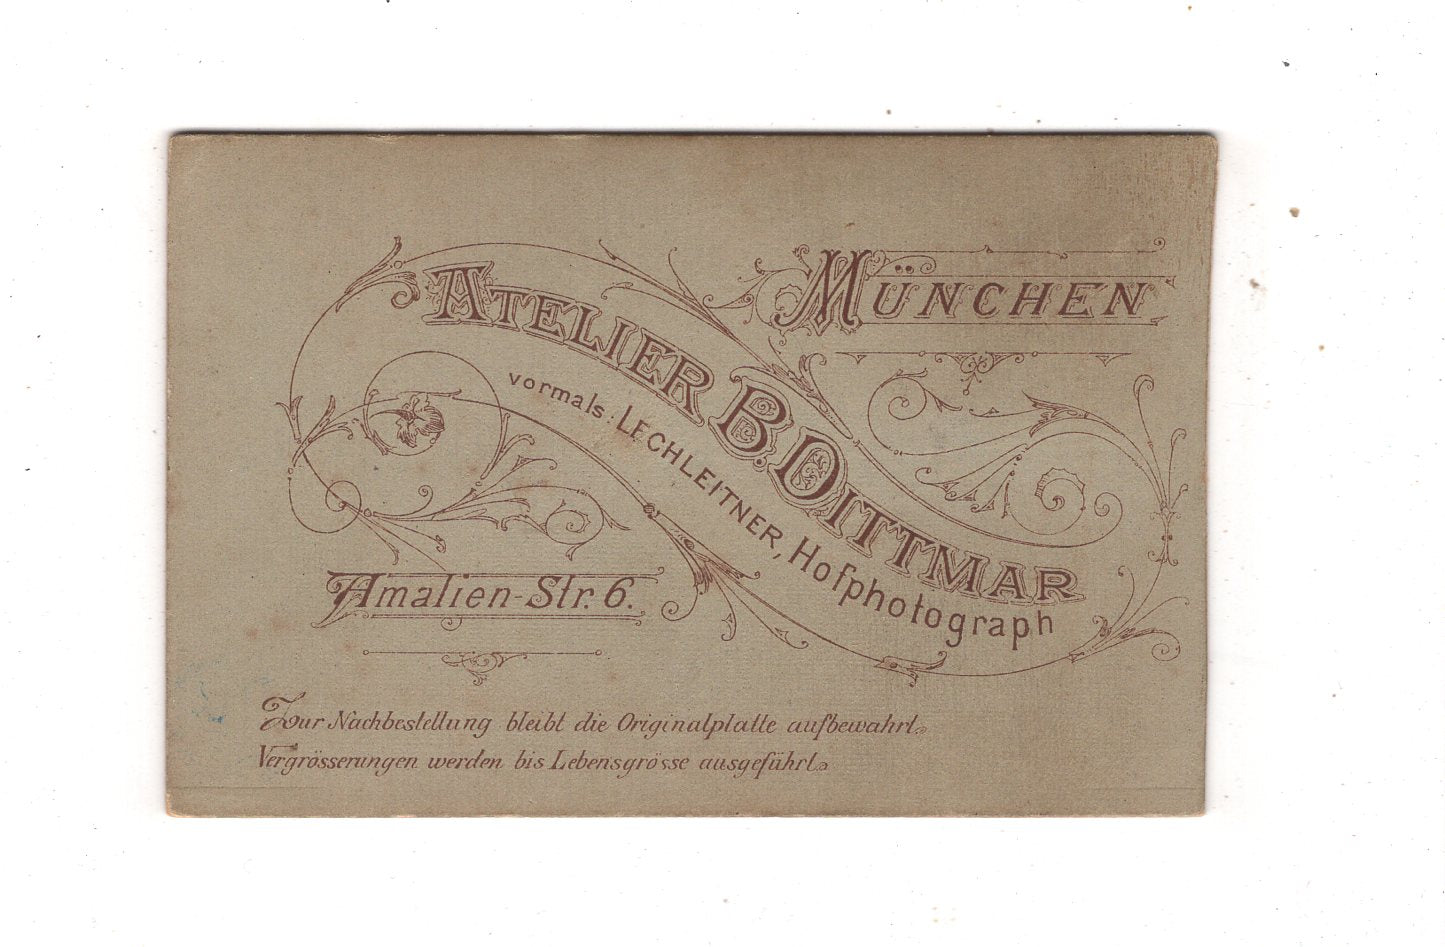 ATELIER B. DITTMAR
MÜNCHEN
vormals: LECHLEITNER, Hofphotograph
Amalien-Str. 6.
Zur Nachbestellung bleibt die Originalplatte aufbewahrt.
Vergrösserungen werden bis Lebensgrösse ausgeführt.